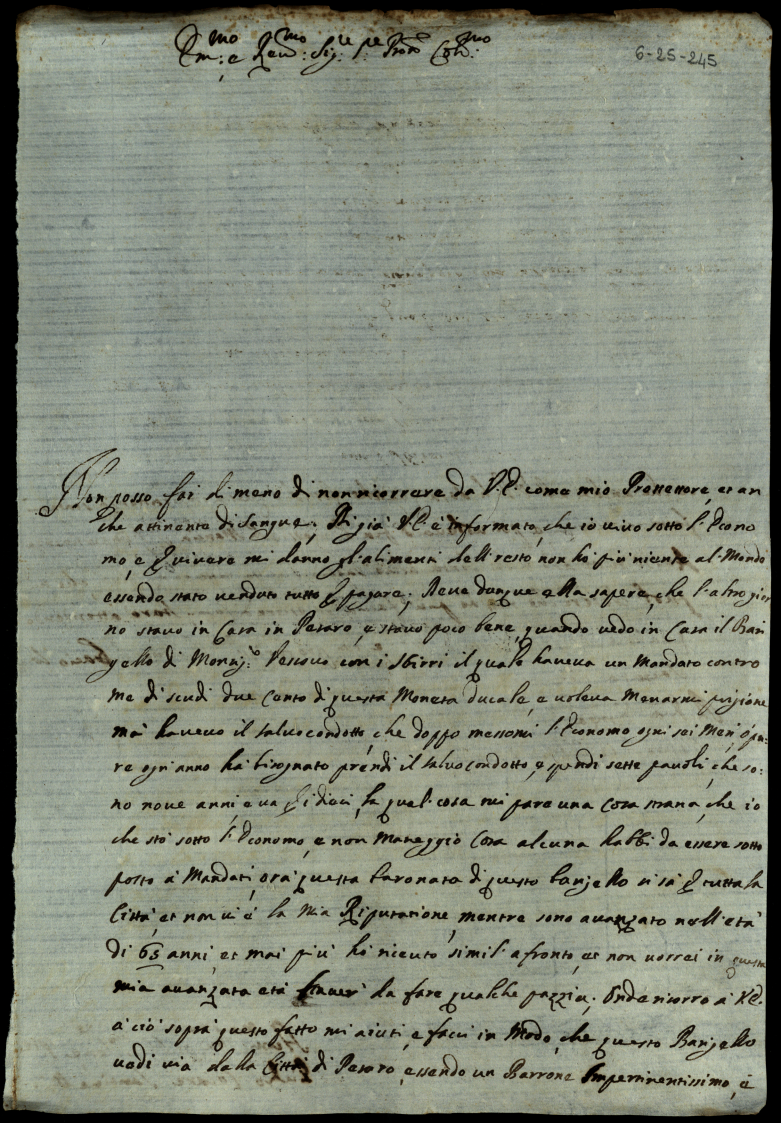 Em:mo e Rev:mo Sig:re Pne Pron Coll:mo
6-25-245
Non posso far di meno di non ricorrere da V.E. come mio Protettore, et an
che attinente di sangue; Di già V.E. è informato, che io vivo sotto l'Econo
mo, e p vivere mi danno gl'alimenti dell resto non ho più niente al Mondo
essendo stato venduto tutto p pagare; Deve dunque ella sapere, che l'altro gior
no stavo in Casa in Pesaro, e stavo poco bene, quando vedo in Casa il Bari
gello di Monsig:r Vescovo con i sbirri il quale haveva un Mandato contro
me di scudi due Cento di questa Moneta ducale, e voleva menarmi prigione
mà havevo il salvocondotto, che doppo messomi l'Economo ogni sei Mesi ò pu
re ogn'anno hà bisognato prendi il salvocondotto, e spendi sette pavoli, che so:
no nove anni, e va p i dieci, la qual cosa mi pare una Cosa strana, che io
che stò sotto l'Economo, e non Maneggio Cosa alcuna habbi da essere sotto
posto à Mandati, orà questa baronata di questo barigello si sà p tutta la
Città, et non vi è la Mia Riputatione, mentre sono avanzato nell'età
di 65 anni, et mai più hò ricevuto simil'afronto, et non vorrei in questa
mia avanzata età haver' da fare qualche pazzia; Onde ricorro à V.E.
à ciò soprà questo fatto mi aiuti, e facci in Modo, che questo Barigello
vadi via dala Città di Pesaro, essendo un Barrone Impertinentissimo, è